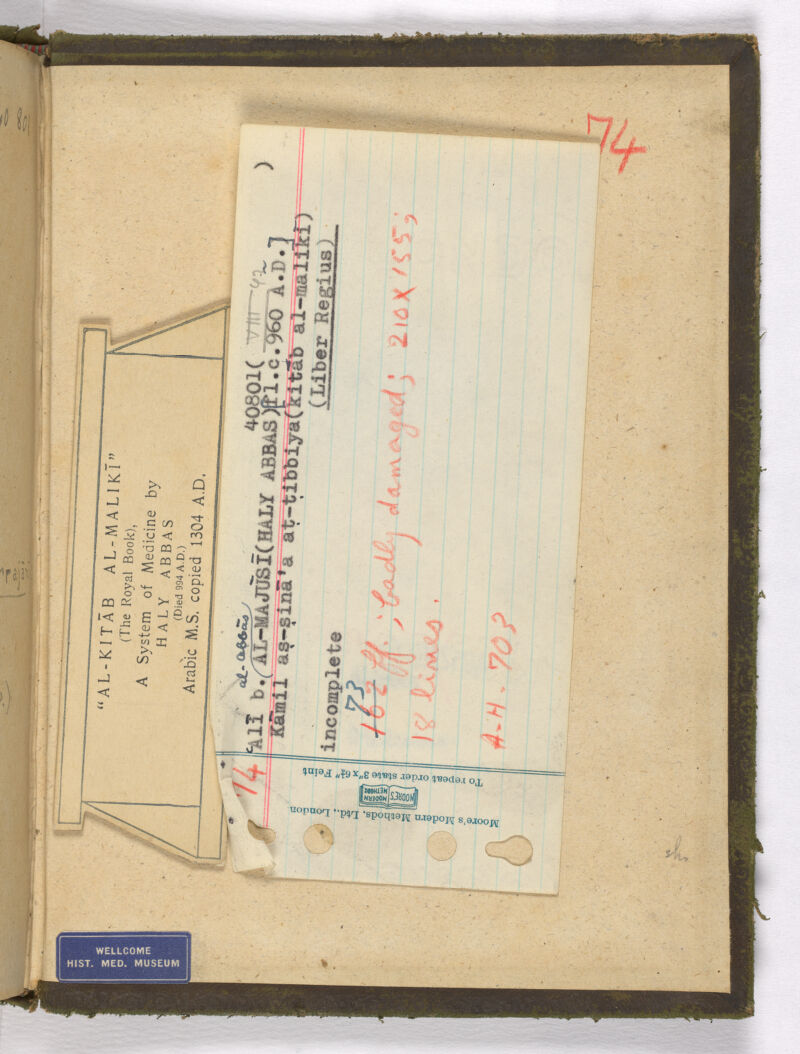 "AL-KITĀB AL-MALIKĪ"
(The Royal Book),
A System of Medicine by
HALY ABBAS
(Died 994 A.D.)
Arabic M.S. copied 1304 A.D.
74
40801( VIII 42 )
al-abbās
ʿAlī b.(AL-MAJŪSĪ(HALY ABBAS)fl.c.960 A.D.]
Kāmil aṣ-ṣinā'a aṭ-ṭibbiya(kitāb al-malikī)
(Liber Regius)
incomplete
73
162 ff.; badly damaged; 210 X 155;
18 lines.
A-H-703
To repeat order state 3"x 6¼" Feint
MOORE'S MODERN METHODS
Moore's Modern Methods, Ltd., London
74
sh.
WELLCOME
HIST. MED. MUSEUM
801